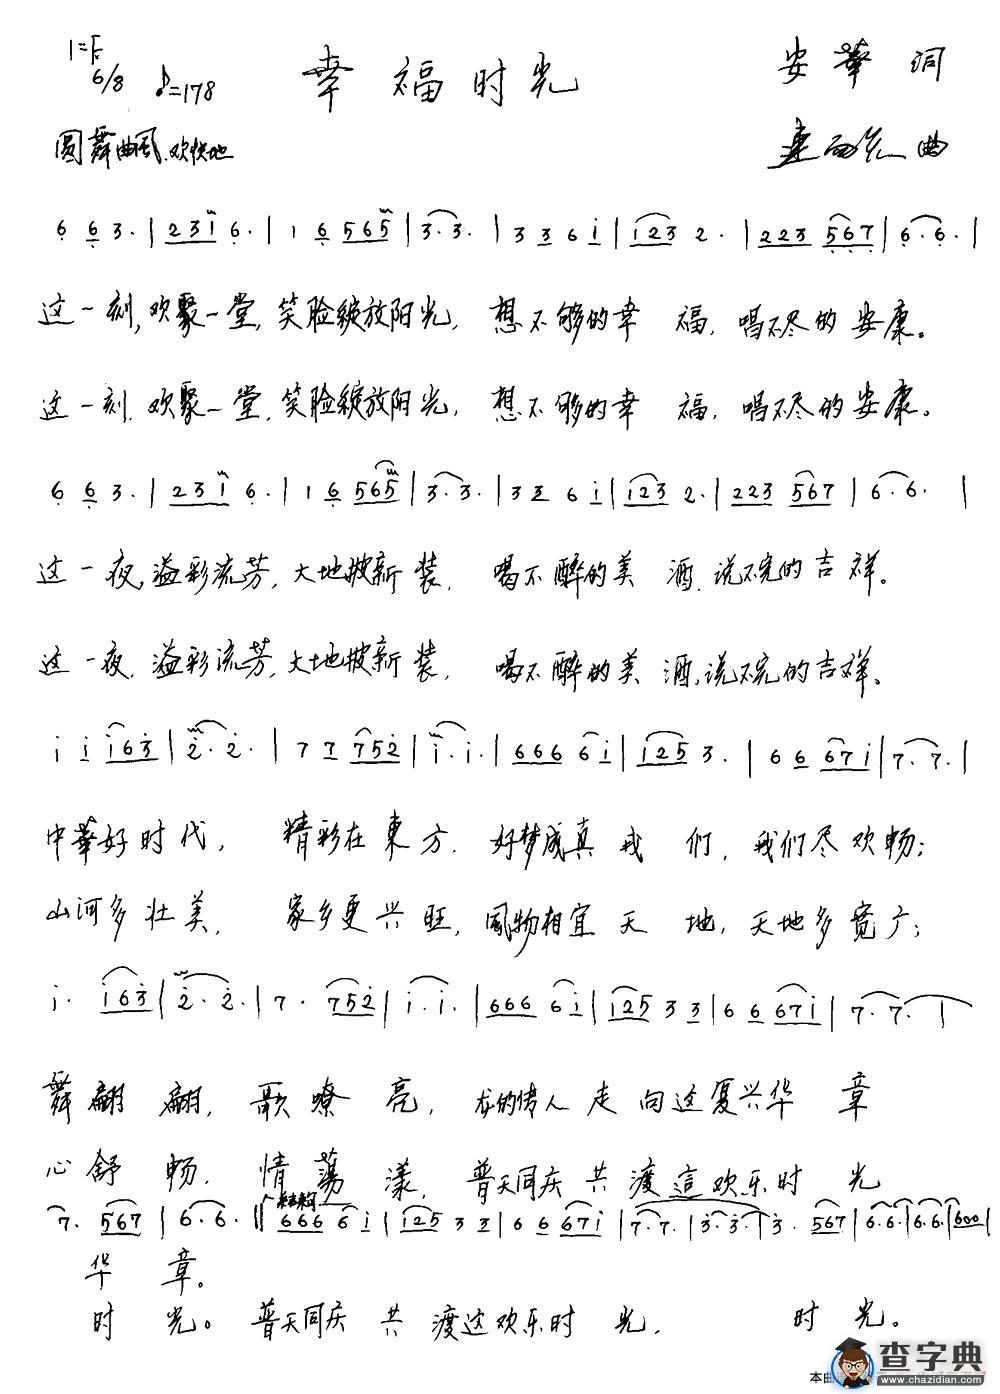 1=F 幸福时光 安華 词
6/8 ♪=178
圆舞曲风.欢快地 曲
6 6 3· | 2 3 1 6· | 1 6 5 6 5 | 3· 3· | 3 3 6 i | i 2 3 2· | 2 2 3 5 6 7 | 6· 6· |
这一刻,欢聚一堂,笑脸绽放阳光, 想不够的幸 福,唱不尽的安康。
这一刻.欢聚一堂.笑脸绽放阳光, 想不够的幸 福,唱不尽的安康。
6 6 3· | 2 3 1 6· | 1 6 5 6 5 | 3· 3· | 3 3 6 i | i 2 3 2· | 2 2 3 5 6 7 | 6· 6· |
这一夜,溢彩流芳,大地披新装, 喝不醉的美 酒.说不完的吉祥。
这一夜.溢彩流芳,大地披新装, 喝不醉的美 酒,说不完的吉祥。
i i i 6 3 | 2· 2· | 7 7 7 5 2 | i· i· | 6 6 6 6 i | i 2 5 3· | 6 6 6 7 i | 7· 7· |
中華好时代, 精彩在東方. 好梦成真我 们,我们尽欢畅;
山河多壮美, 家乡更兴旺,風物相宜天 地,天地多宽广;
i· i 6 3 | 2· 2· | 7· 7 5 2 | i· i· | 6 6 6 6 i | i 2 5 3 3 | 6 6 6 7 i | 7· 7· |
舞翩 翩, 歌嘹 亮, 龙的传人 走 向这复兴华 章
心舒 畅. 情荡 漾, 普天同庆 共 渡這欢乐时 光
7· 5 6 7 | 6· 6· :‖ 结束句 6 6 6 6 i | i 2 5 3 3 | 6 6 6 7 i | 7· 7· | 3· 3· | 3· 5 6 7 | 6· 6· | 6· 6· | 6 0 0 |
华 章。
时 光。 普天同庆 共 渡这欢乐时 光, 时 光。
查字典
www.chazidian.com
本曲